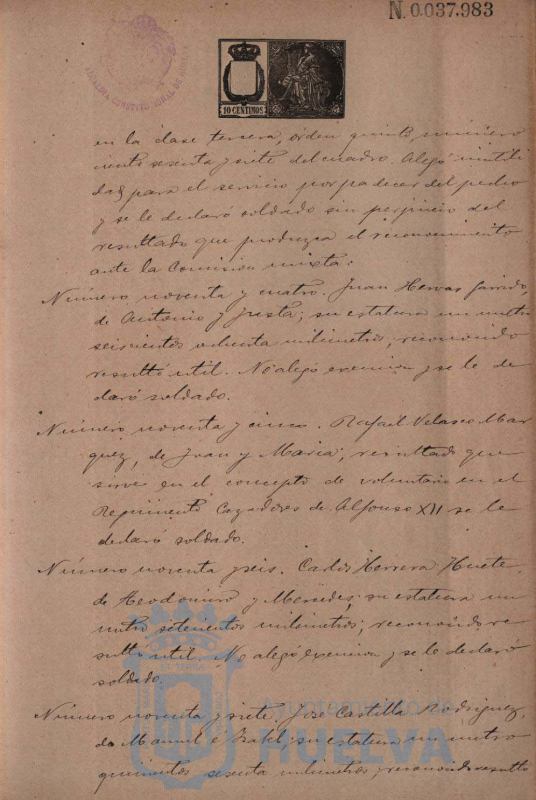 N. 0.037.983
ALCALDIA CONSTITUCIONAL DE HUELVA
10 CENTIMOS
en la clase tercera, órden quinto, número
ciento sesenta y siete del cuadro. Alegó inutili
dad para el servicio por padecer del pecho
y se le declaró soldado sin perjuicio del
resultado que produzca el reconocimiento
ante la Comision mixta.
Número noventa y cuatro. Juan Hervas Garrido,
de Antonio y Justa; su estatura un metro
seiscientos ochenta milimetros; reconocido
resultó util. No alegó exencion y se le de
claró soldado.
Número noventa y cinco. Rafael Velasco Mar
quez, de Juan y Maria; resultado que
sirve en el concepto de voluntario en el
Regimiento Cazadores de Alfonso XII se le
declaró soldado.
Número noventa y seis. Carlos Herrera Huete,
de Teodomiro y Mercedes; su estatura un
metro setecientos milimetros; reconocido re
sultó util. No alegó exencion y se le declaró
soldado.
Número noventa y siete. José Castilla Rodriguez,
de Manuel é Isabel; su estatura un metro
quinientos sesenta milimetros; reconocido resultó
Ayuntamiento de
HUELVA